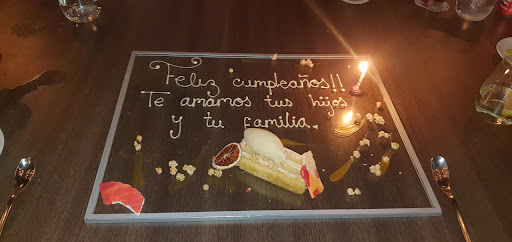 Feliz cumpleaños!!
Te amamos tus hijos
y tu familia.